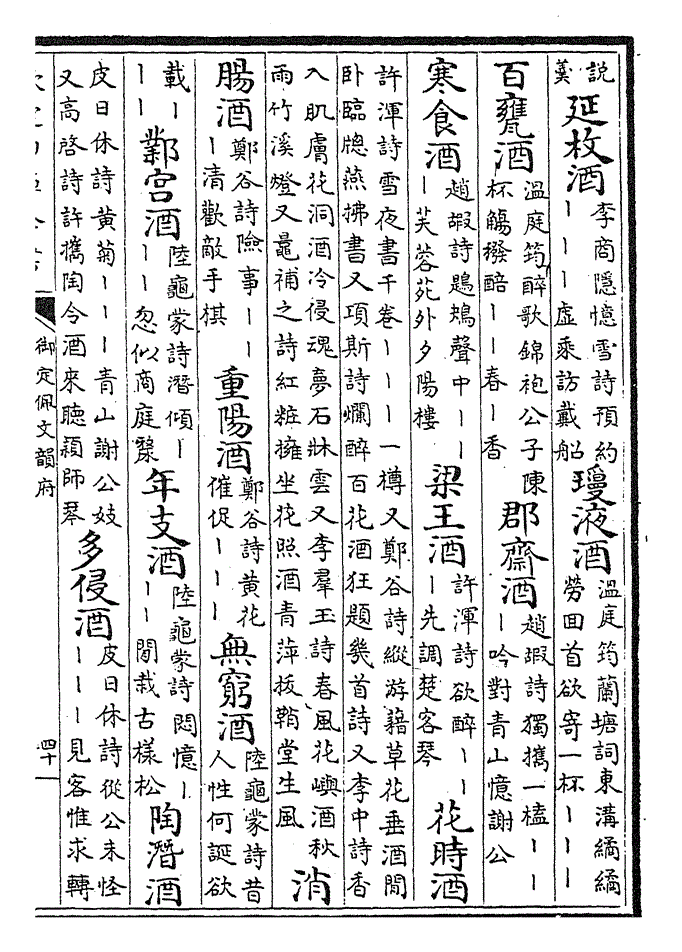 說羹延枚酒李商隱憶雪詩預約｜｜｜虛乘訪戴船瓊液酒溫庭筠蘭塘詞東溝繘繘勞回首欲寄一杯｜｜｜
百甕酒溫庭筠醉歌錦袍公子陳杯觴撥醅｜｜春｜香郡齋酒趙嘏詩獨攜一榼｜｜｜吟對青山憶謝公
寒食酒趙嘏詩鶗鴂聲中｜｜｜芙蓉苑外夕陽樓梁王酒許渾詩欲醉｜｜｜先調楚客琴花時酒
許渾詩雪夜書千卷｜｜｜一樽又鄭谷詩縱游藉草花垂酒閒
臥臨牕燕拂書又項斯詩爛醉百花酒狂題幾首詩又李中詩香
入肌膚花洞酒冷侵魂夢石牀雲又李羣玉詩春風花嶼酒秋
雨竹溪燈又鼂補之詩紅粧擁坐花照酒青萍拔鞘堂生風消
腸酒鄭谷詩險事｜｜｜清歡敵手棋重陽酒鄭谷詩黃花催促｜｜｜無窮酒陸龜蒙詩昔人性何誕欲
載｜｜｜鄴宮酒陸龜蒙詩潛傾｜｜｜忽似商庭漦年支酒陸龜蒙詩悶憶｜｜｜閒栽古樣松陶潛酒
皮日休詩黃菊｜｜｜青山謝公妓
又高啓詩許攜陶令酒來聽穎師琴多侵酒皮日休詩從公未怪｜｜｜見客惟求轉
御定佩文韻府
四十